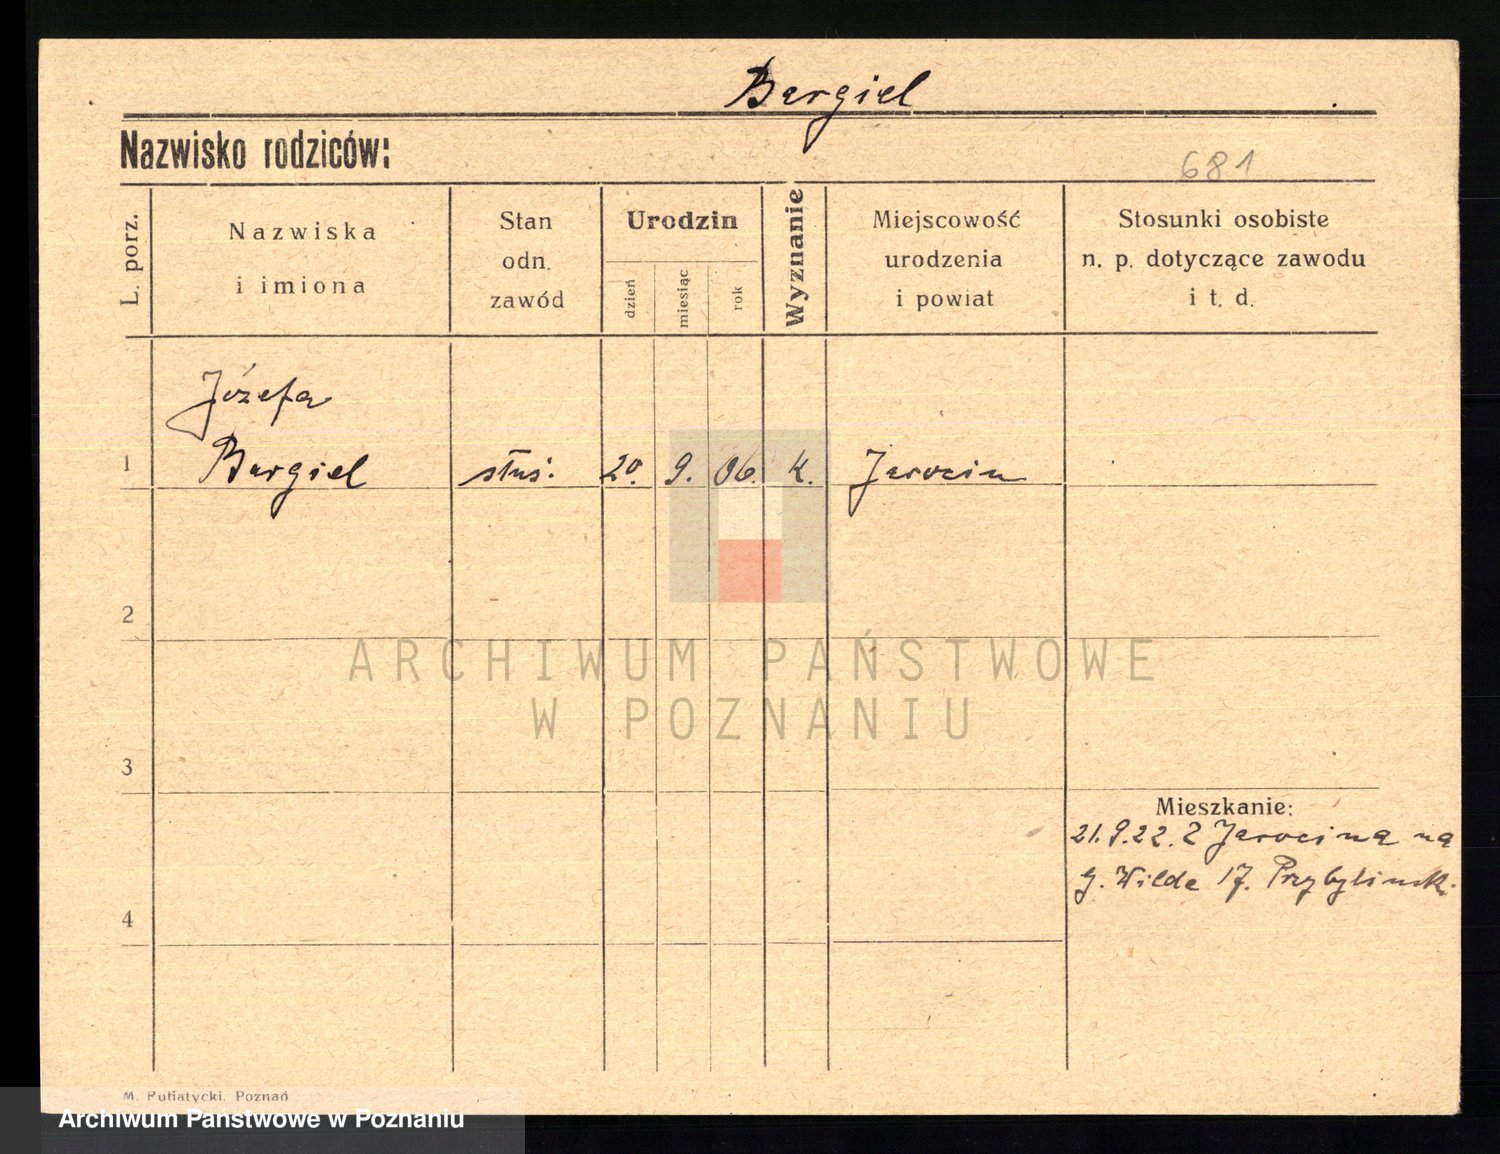 Bargiel
Nazwisko rodziców:
681
L. porz.
Nazwiska
i imiona
Stan
odn.
zawód
Urodzin
dzień
miesiąc
rok
Wyznanie
Miejscowość
urodzenia
i powiat
Stosunki osobiste
n. p. dotyczące zawodu
i t. d.
Józefa
1 Bargiel służ. 20. 9. 06. K. Jarocin
2
ARCHIWUM PAŃSTWOWE
W POZNANIU
3
Mieszkanie:
21.9.22. z Jarocina na
G. Wilda 17. Przybylinski.
4
M. Putiatycki. Poznań
Archiwum Państwowe w Poznaniu